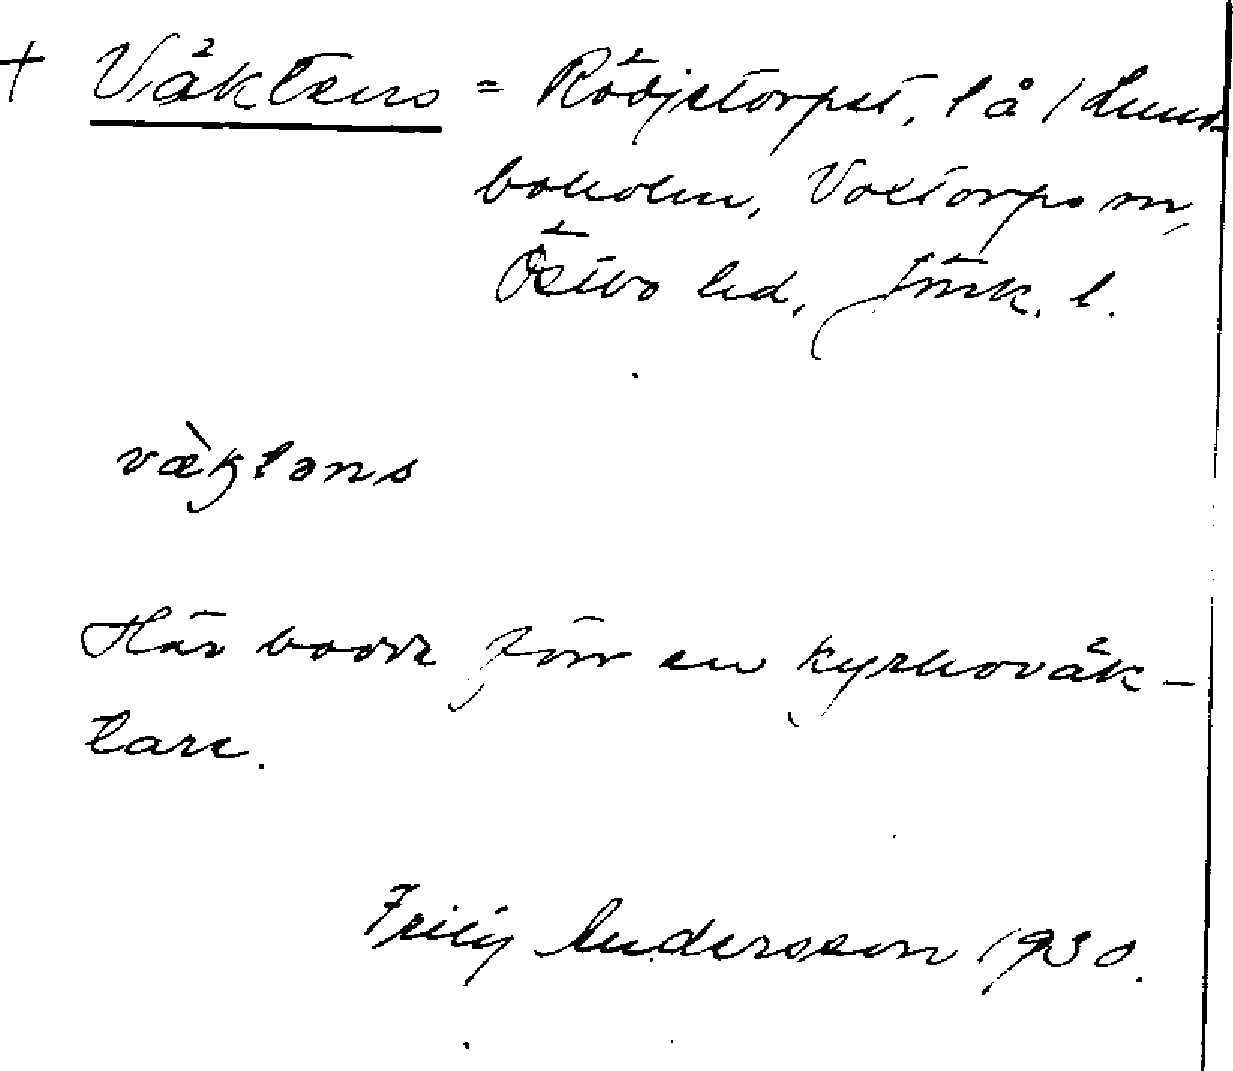 + Väktens = Rödjetorpet, lå / Lund-
boholm, Voxtorps sn,
Östbo hd, Jönk. l.
vàktəns
Här bodde förr en kyrkoväk-
tare.
Andersson 1930.